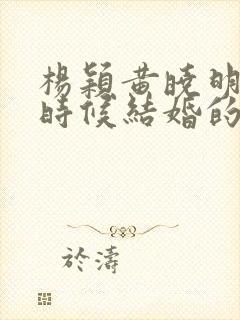 楊穎黃曉明
時候結婚的
於濤